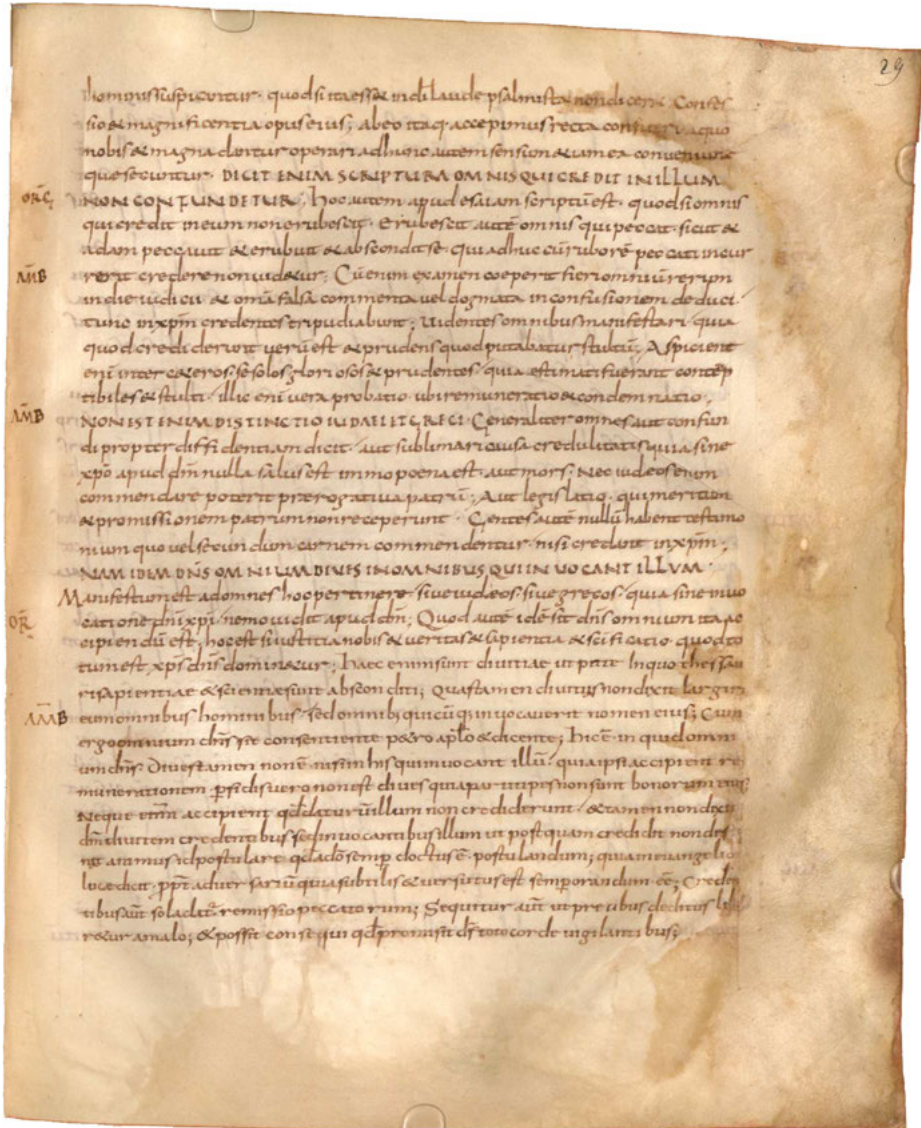 29
hominis suspicontur. quod si ita ess& in dī laude psalmista non dicer& Confes
sio & magnificentia opus eius; ab eo itaq· accepimus recta a quo
nobis & magna dontur operari ad hunc autem sensum & iam ea conveniunt
que secuntur. DICIT ENIM SCRIPTURA OMNIS QUI CREDIT IN ILLUM
ORG NON CONFUNDETUR; hoc autem apud esaiam scriptū est. quod si omnis
qui credit in eum non erubescit. Erubescit autē omnis qui peccat. sicut &
adam peccavit & erubuit & abscondit se. qui adhuc cū ruborē peccati incur
rerit credere non vid&ur; Cū enim examen coeperit fieri omniū rerum
AMB in die iudicii & omīa falsa commenta vel dogmata in confusionem deduci.
tunc in xpm̄ credentes tripudiabunt; uidentes omnibus manifestari quia
quod crediderunt verū est & prudens quod putabatur stultū; Aspicient
enī inter c&eros se solos gloriosos & prudentes. quia estimati fuerant contēp
tibiles & stulti. illic enī vera probatio ubi remuneratio & condemnatio,
AMB NON EST ENIM DISTINCTIO IUDAEI ET GRECI. Generaliter omnes aut confun
di propter diffidentiam dicit. aut sublimari causa credulitatis quia sine
xpō apud dm̄ nulla salus est immo poena est. aut mors; Nec iudeos enim
commendare poterit praerogativa patrū. Aut legislatio. qui meritum
& promissionem patrum non receperunt. Gentes autē nullū habent testimo
nium quo vel secundum carnem commendentur. nisi credant in xpm̄;
NAM IDEM DN̄S OMNIUM DIVES IN OMNIBUS QUI INVOCANT ILLUM.
Manifestum est ad omnes hoc pertinere sive iudeos. sive grecos. quia sine invo
OR̄ catione dnī xpī. nemo vidit apud dm̄; Quod autē idē sit dn̄s omnium ita ac
cipiendū est. hoc est si iustitia nobis & veritas & sapientia & sc̄ificatio quod to
tum est xps̄ dn̄s domin&ur; haec enim sunt divitiae ut puto In quo thessau
ri sapientiae & scientiae sunt absconditi; Quas tamen divitias non dixit largiri
AMB eum omnibus hominibus. sed omnib; quicūq; invocaverit nomen eius; Cum
ergo omnium dn̄s sit consentiente p&ro apłō & dicente; hic ē. inquid omni
um dn̄s. Dives tamen non ē. nisi in his qui invocant illū. quia ipsi accipient re
munerationem. p̄fidis vero non est dives quia participes non sunt bonorum eius
Neque enim accipient qd̄ datur in illum non crediderunt. & tamen non dixit
dm̄ divitem credentibus sed invocantibus illum ut postquam credidit non desi
nat animus id postulare qd̄ a dō semp̄ doctus ē. postulandum; quia in evangelio
lucę dicit. ppt̄ adversariū quia subtilis & versutus est semp̄ orandum. ēē; Creden
tibus aut̄ sola datᵉ. remissio peccatorum; Sequitur aut̄ ut precibus deditus libe
r&ur a malo; & possit consequi qd̄ promisit ds̄ toto corde vigilantibus;